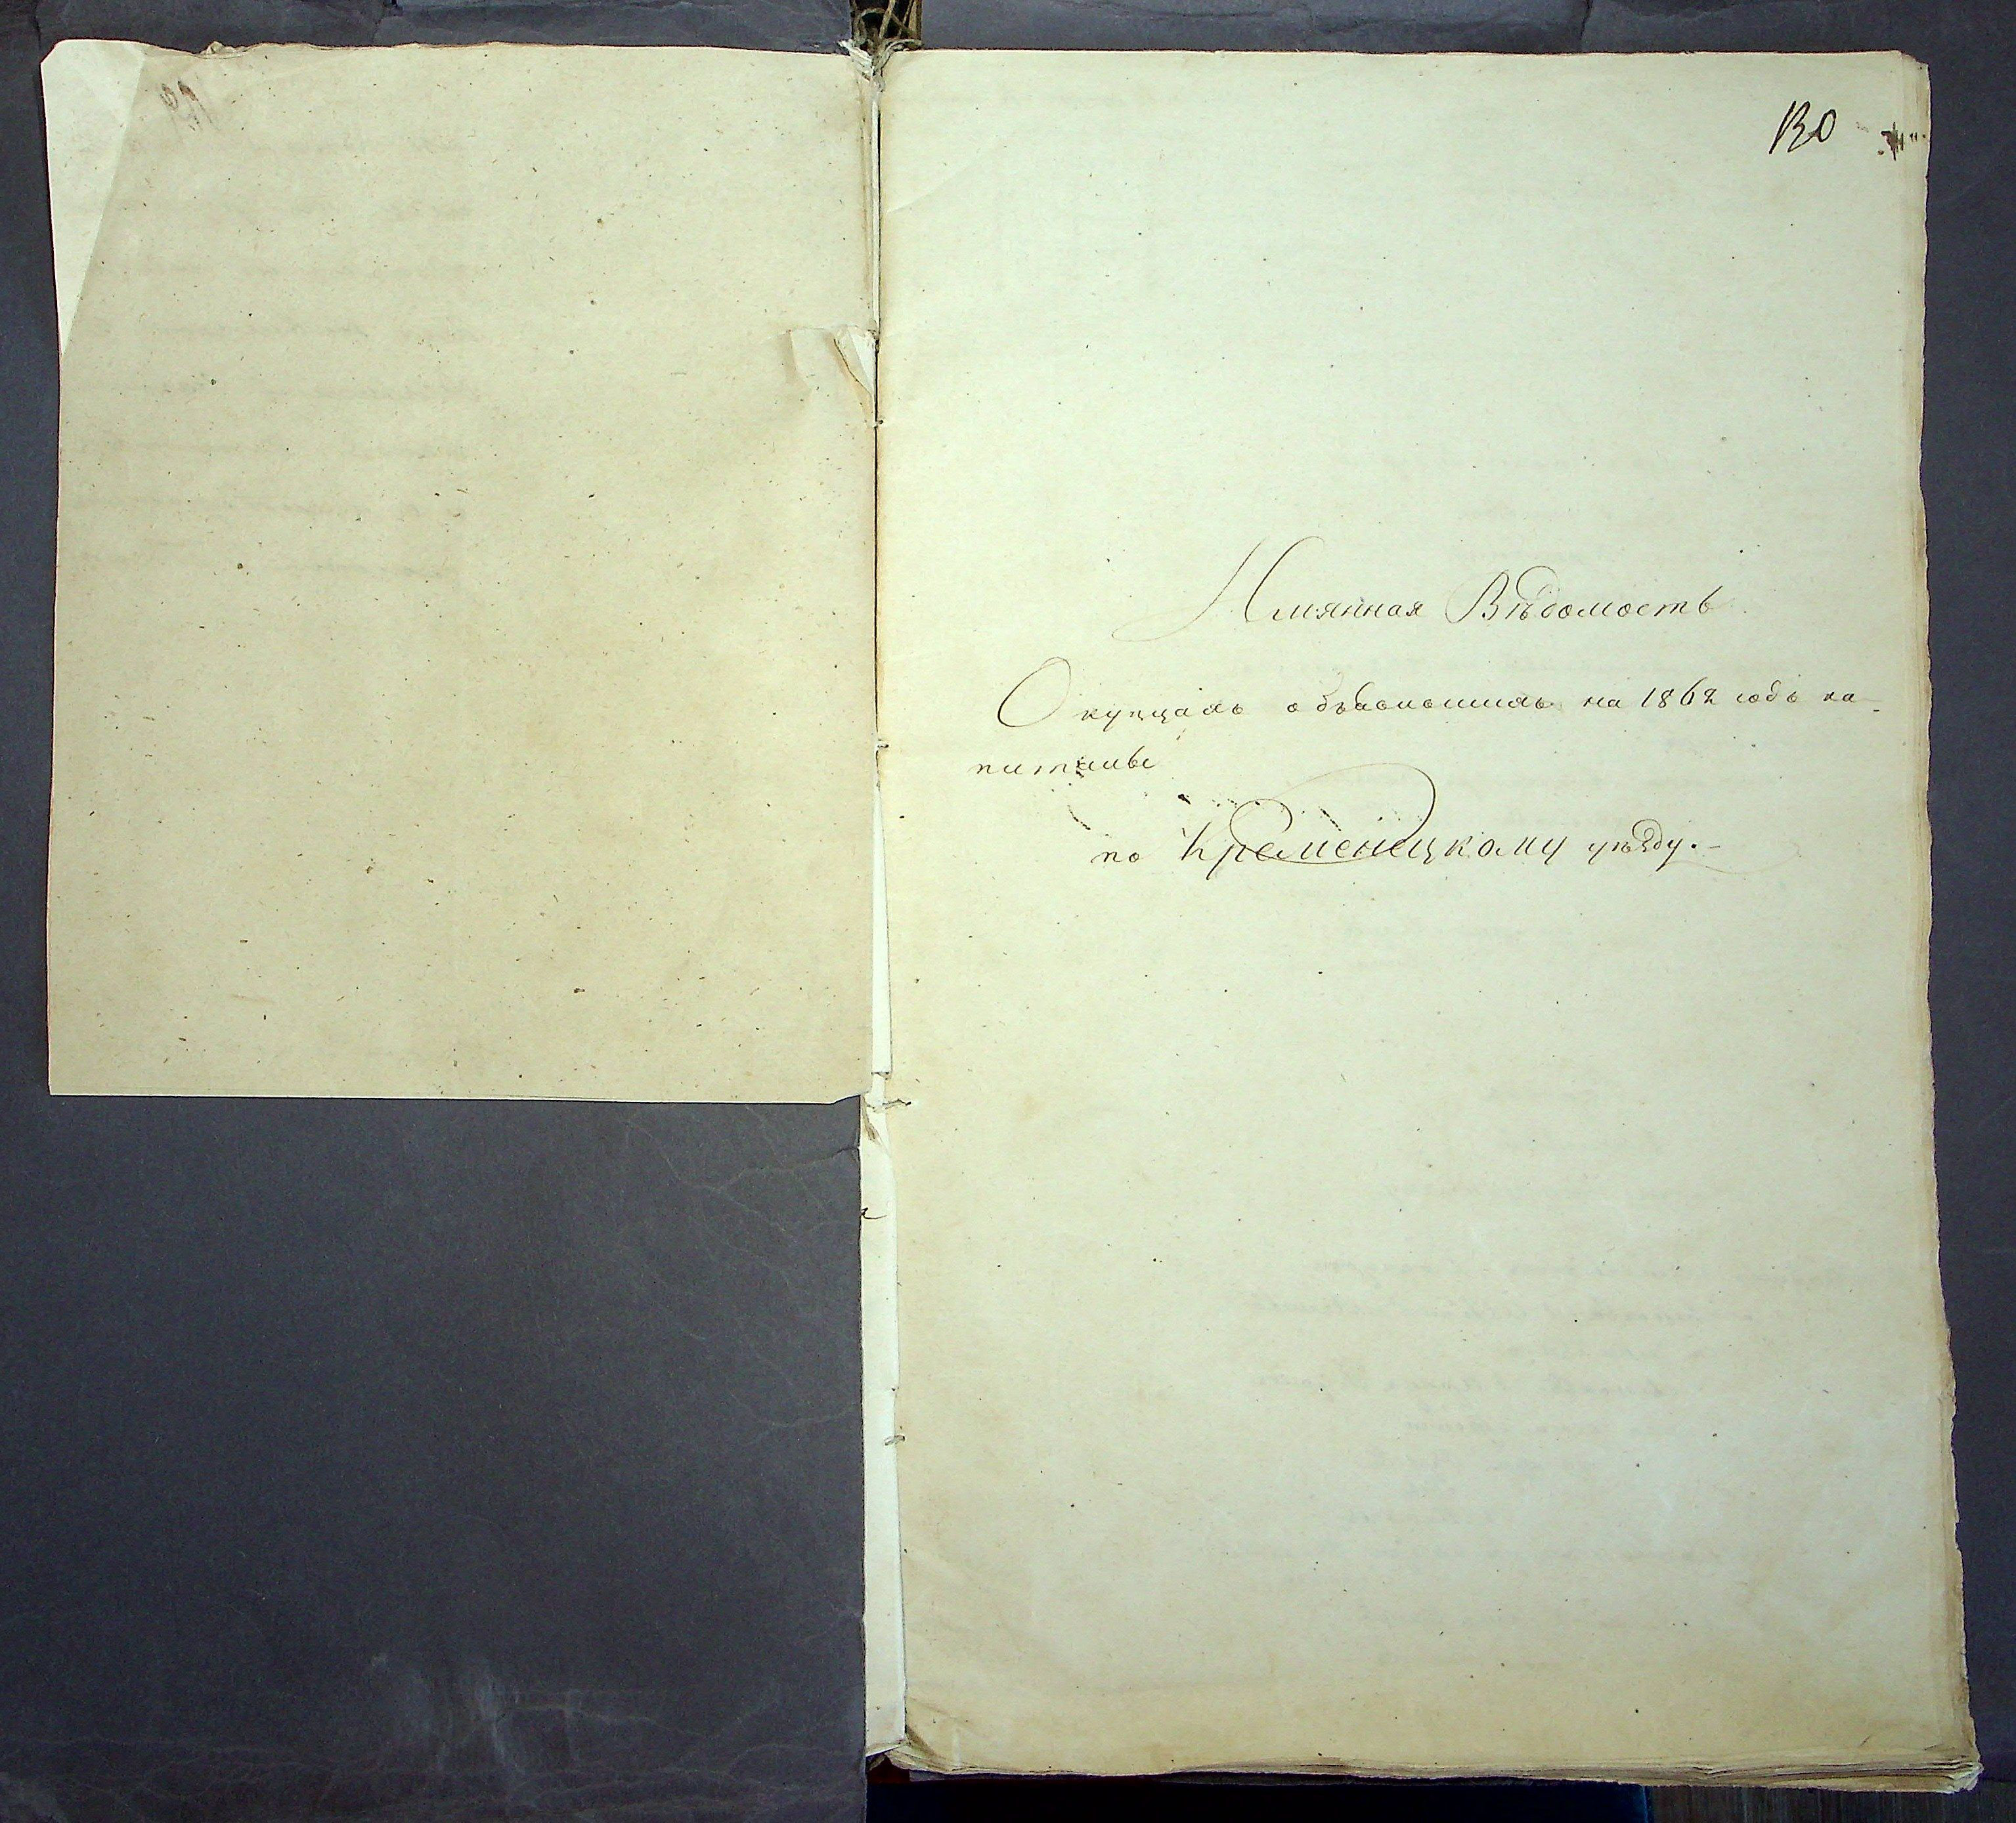 130
Имянная Вѣдомость
О купцахъ объявившихъ на 1862 годъ ка-
питалы
по Кременецкому уѣзду.-